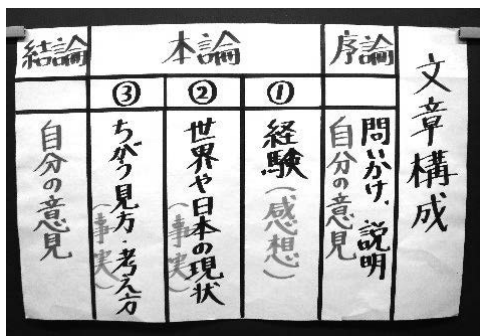 文章構成
序論
問いかけ、説明
自分の意見
本論
①
経験(感想)
②
世界や日本の現状
(事実)
③
ちがう見方・考え方
(事実)
結論
自分の意見